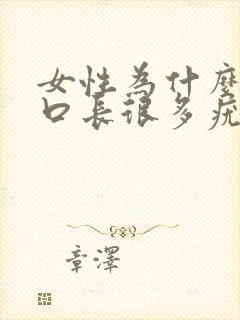 女性為什麼
口長很多疣
章澤